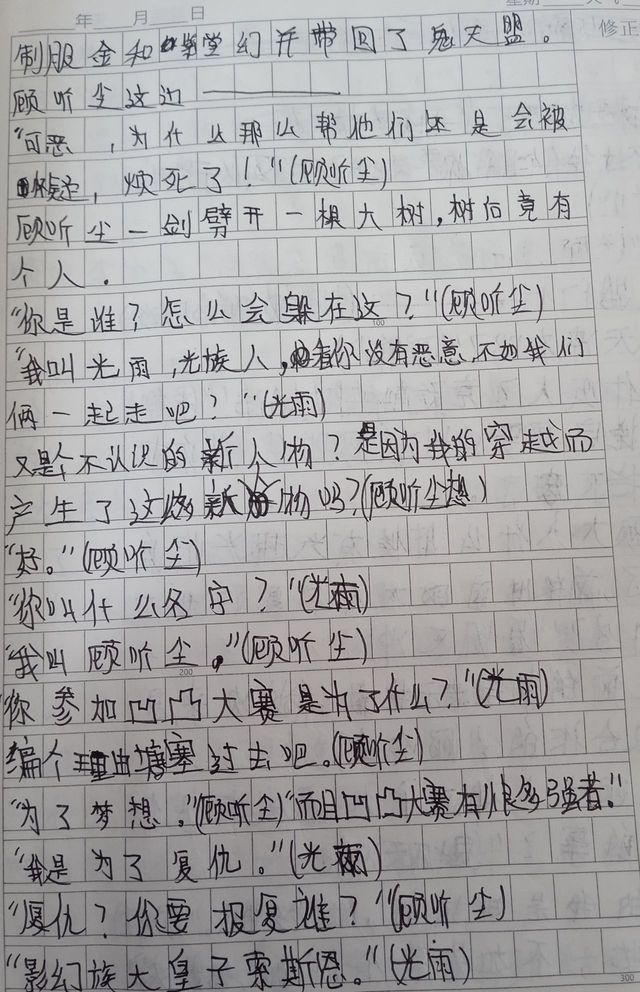 年 月 日
修正
制服金和紫堂幻并带回了鬼天盟。
顾听尘这边————
“可恶，为什么那么帮他们还是会被
怀疑，烦死了！”(顾听尘)
顾听尘一剑劈开一棵大树，树后竟有
个人.
“你是谁？怎么会躲在这？”(顾听尘)
“我叫光雨，光族人，看你没有恶意，不如我们
俩一起走吧？”(光雨)
又是个不认识的新人物？是因为我的穿越而
产生了这些新人物吗？(顾听尘想)
“好。”(顾听尘)
“你叫什么名字？”(光雨)
“我叫顾听尘。”(顾听尘)
200
你参加凹凸大赛是为了什么？”(光雨)
编个理由搪塞过去吧。(顾听尘)
“为了梦想。”(顾听尘)“而且凹凸大赛有很多强者.”
“我是为了复仇。”(光雨)
“复仇？你要报复谁？”(顾听尘)
“影幻族大皇子索斯恩。”(光雨)
300